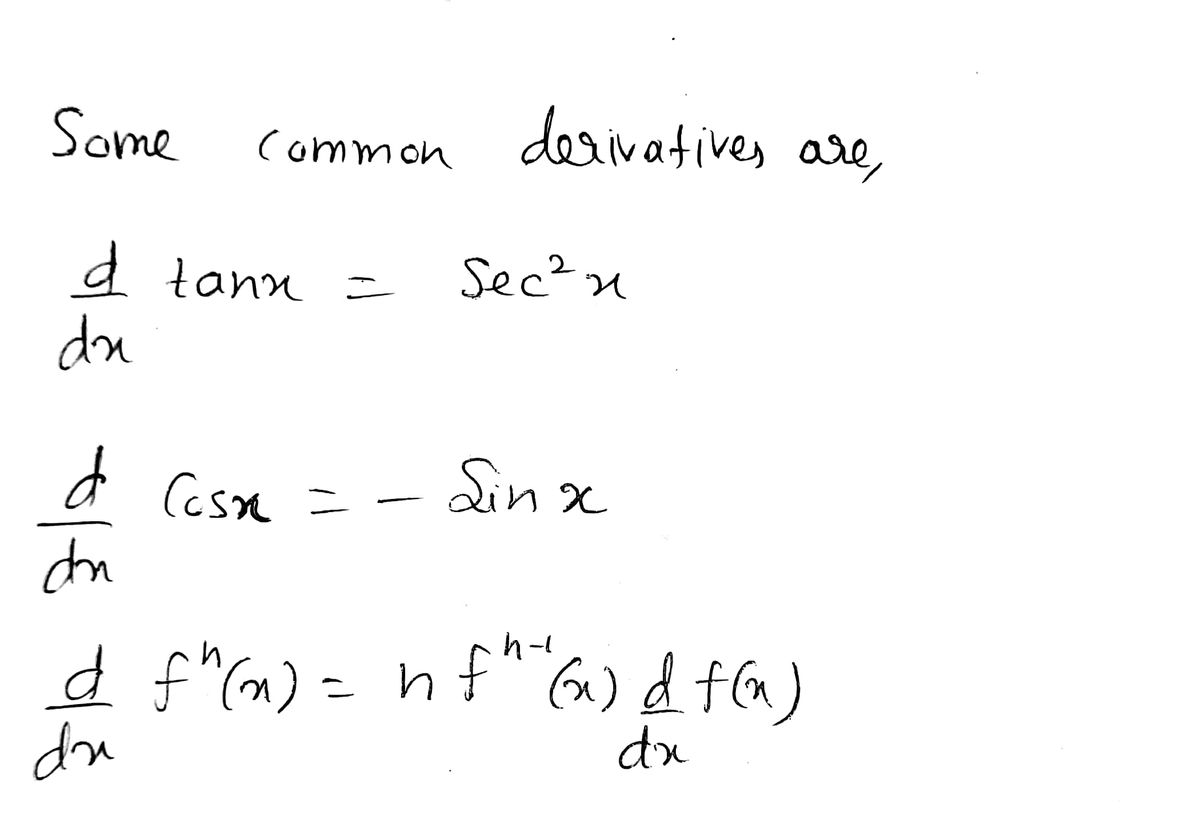 Some common derivatives are,
d/dx tanx = Sec²x
d/dx Cosx = - Sin x
d/dx fⁿ(x) = n fⁿ⁻¹(x) d/dx f(x)